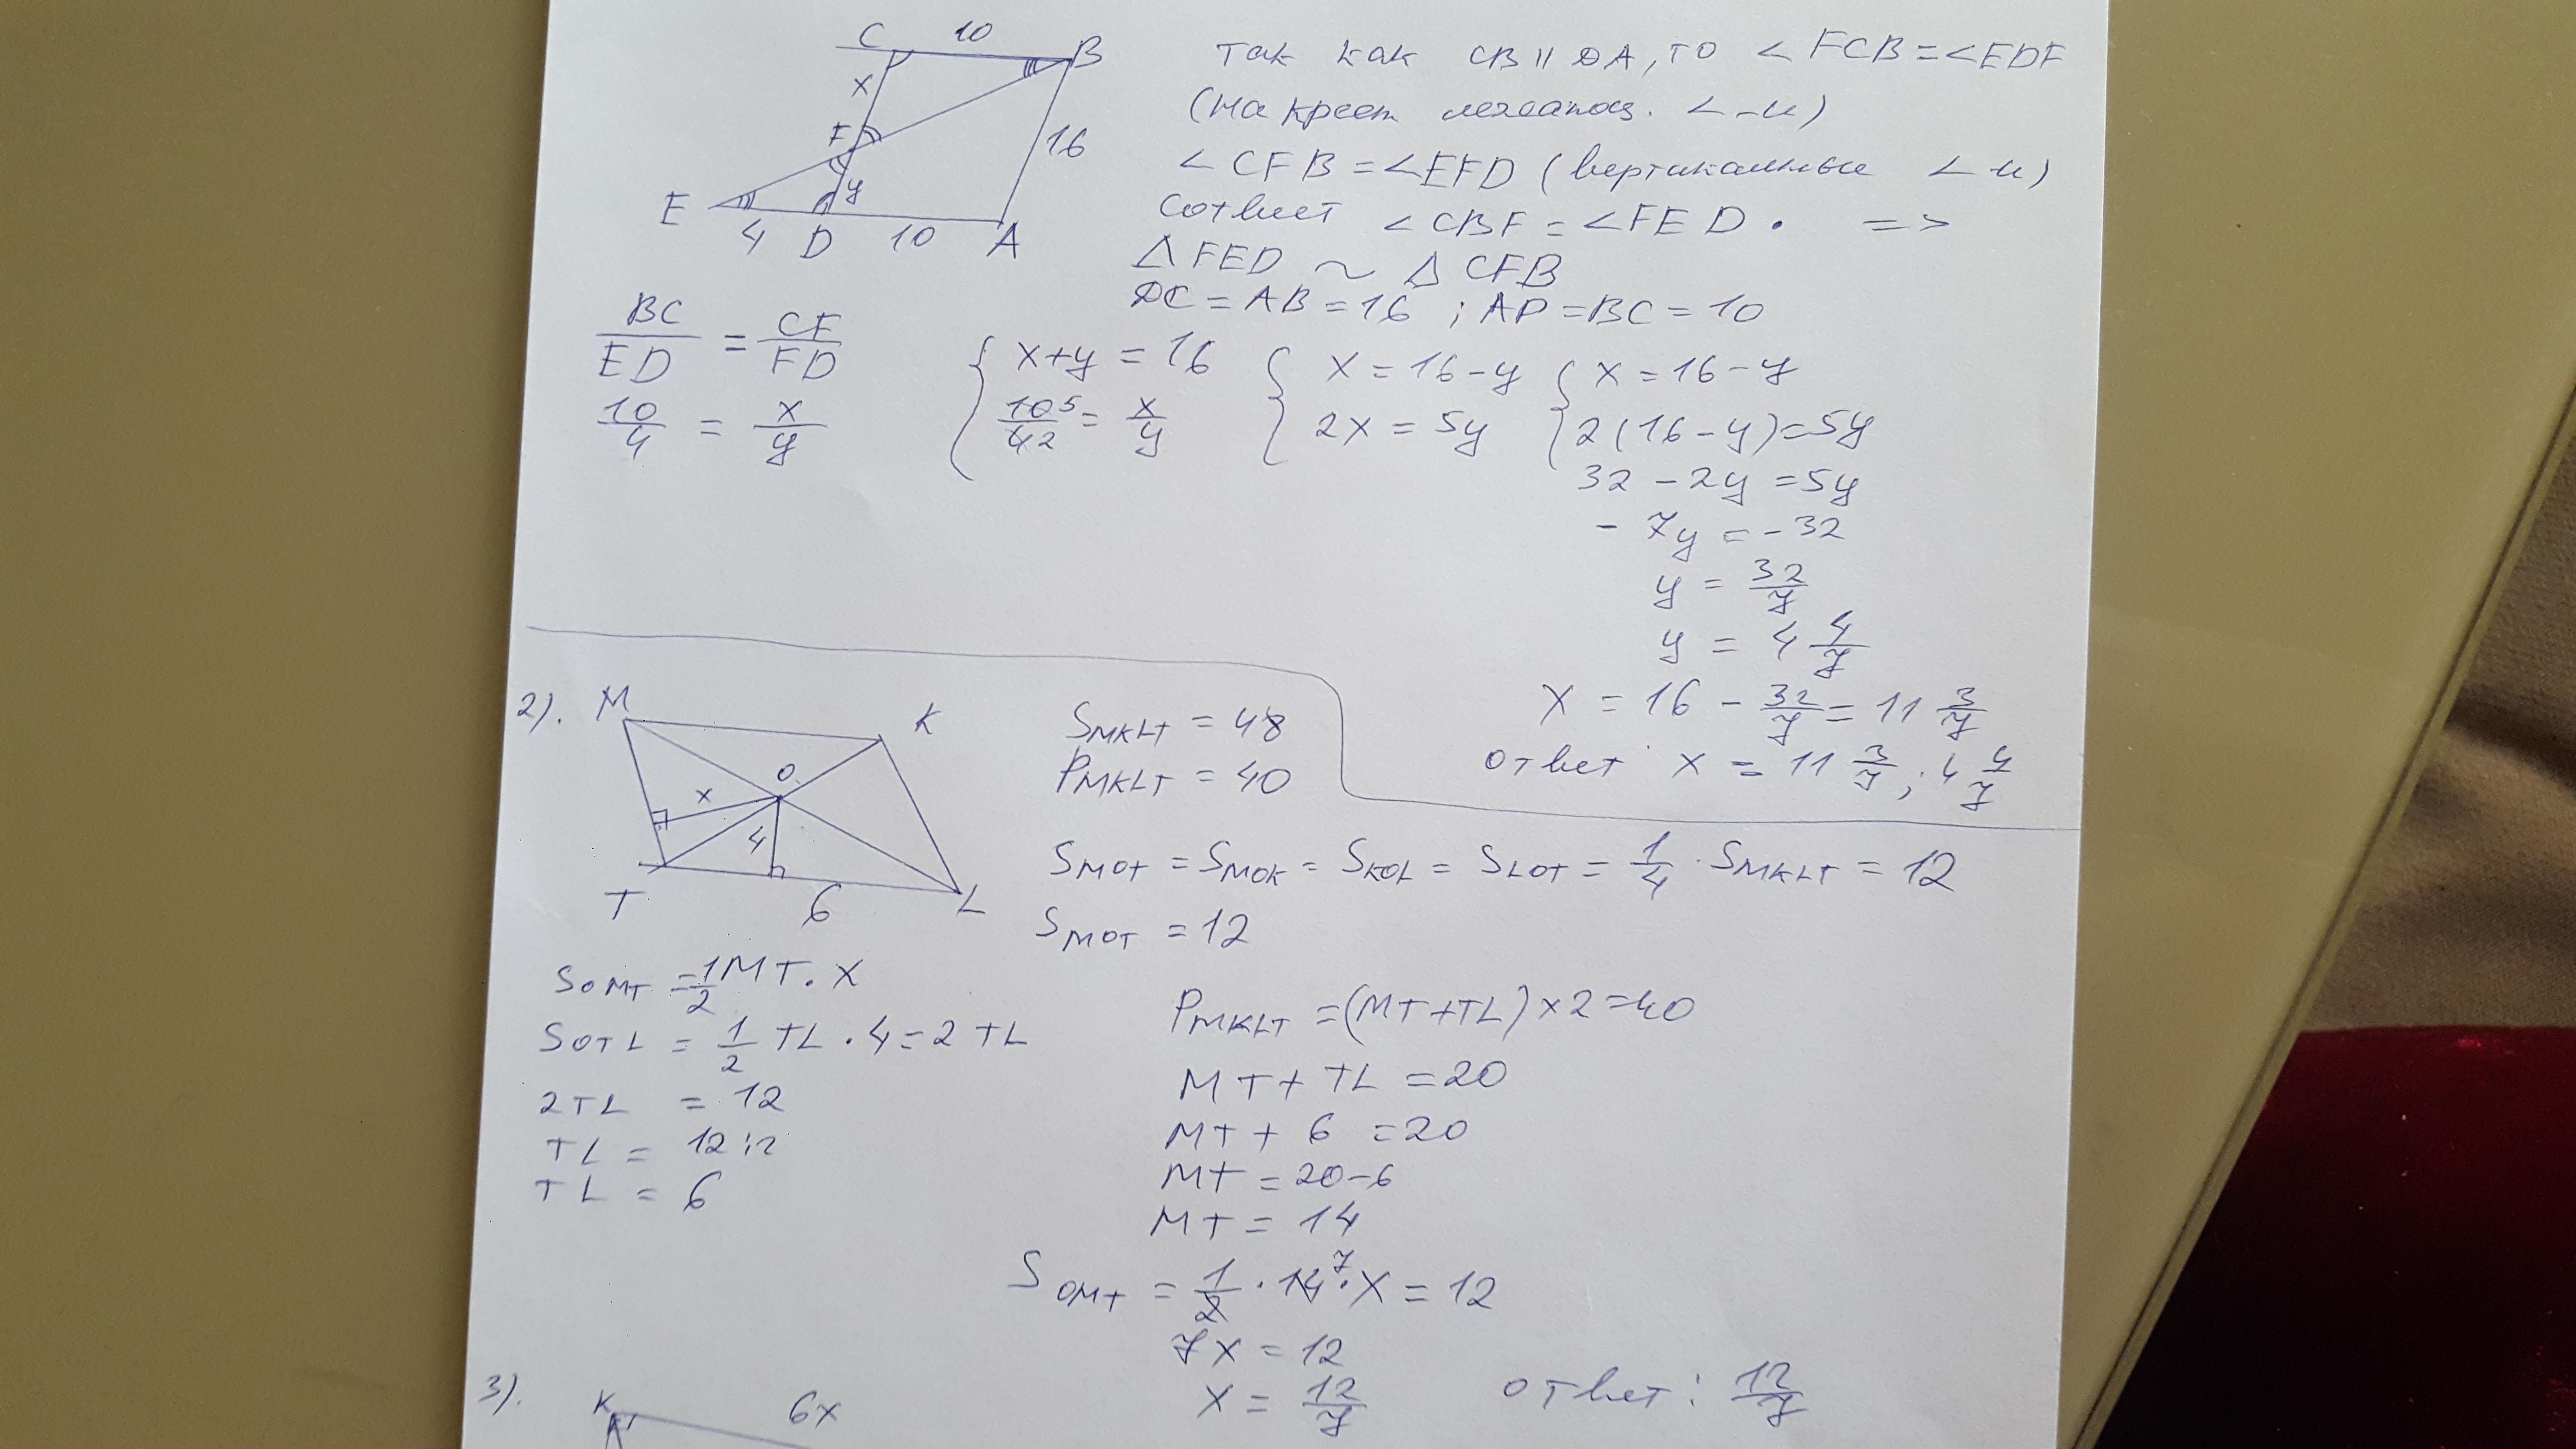 C 10 B
x
F
16
y
E 4 D 10 A
так как CB || DA, то ∠FCB = ∠EDF
(на крест лежащ. ∠-и)
∠CFB = ∠EFD (вертикальные ∠ и)
Сответ ∠CBF = ∠FED. =>
△FED ~ △CFB
DC = AB = 16 ; AD = BC = 10
BC/ED = CF/FD
10/4 = x/y
{ x+y = 16
10/4 5/2 = x/y
{ x = 16-y
2x = 5y
{ x = 16-y
2(16-y)=5y
32 - 2y = 5y
- 7y = -32
y = 32/7
y = 4 4/7
x = 16 - 32/7 = 11 3/7
ответ x = 11 3/7 ; 4 4/7
2).
M K
O
x
4
T 6 L
SMKLT = 48
PMKLT = 40
SMOT = SMOK = SKOL = SLOT = 1/4 · SMKLT = 12
SMOT = 12
SOMT = 1/2 MT · x
SOTL = 1/2 TL · 4 = 2 TL
2TL = 12
TL = 12:2
TL = 6
PMKLT = (MT+TL)×2=40
MT + TL = 20
MT + 6 = 20
MT = 20-6
MT = 14
SOMT = 1/2 · 14 7 · x = 12
7x = 12
x = 12/7
ответ: 12/7
3).
K 6x